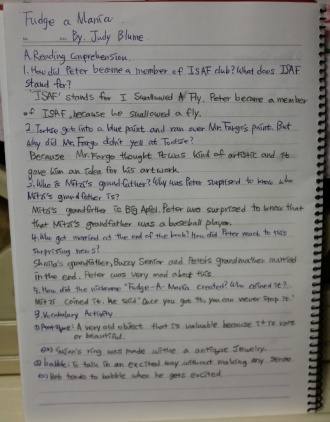 Fudge a Mania
By. Judy Blume
A. Reading Comprehension.
1. How did Peter became a member of ISAF club? What does ISAF
stand for?
"ISAF" stands for I Swallowed A Fly. Peter became a member
of ISAF, because he swallowed a fly.
2. Tootsie got into a blue paint and ran over Mr. Fargo's paint. But
why did Mr. Fargo didn't yell at Tootsie?
Because Mr. Fargo thought it was kind of artistic and it
gave him an idea for his artwork.
3. Who is Mitzi's grandfather? Why was Peter surprised to know who
Mitzi's grandfather is?
Mitzi's grandfather is Big Apfel. Peter was surprised to know that
that Mitzi's grandfather was a baseball player.
4. Who got married at the end of the book? How did Peter react to this
surprising news?
Sheila's grandfather, Buzzy Senior and Peter's grandmother married
in the end. Peter was very mad about this.
5. How did the nickname "Fudge-A-Mania" created? Who coined it?
Mitzi coined it. He said "Once you got it, you can never stop it."
B. Vocabulary Activity
① Antique: A very old object that is valuable because it is rare
or beautiful.
ex) Susan's ring was made with a antique Jewelry.
② babble: To talk in an excited way without making any sense
ex) Bob tends to babble when he gets excited.